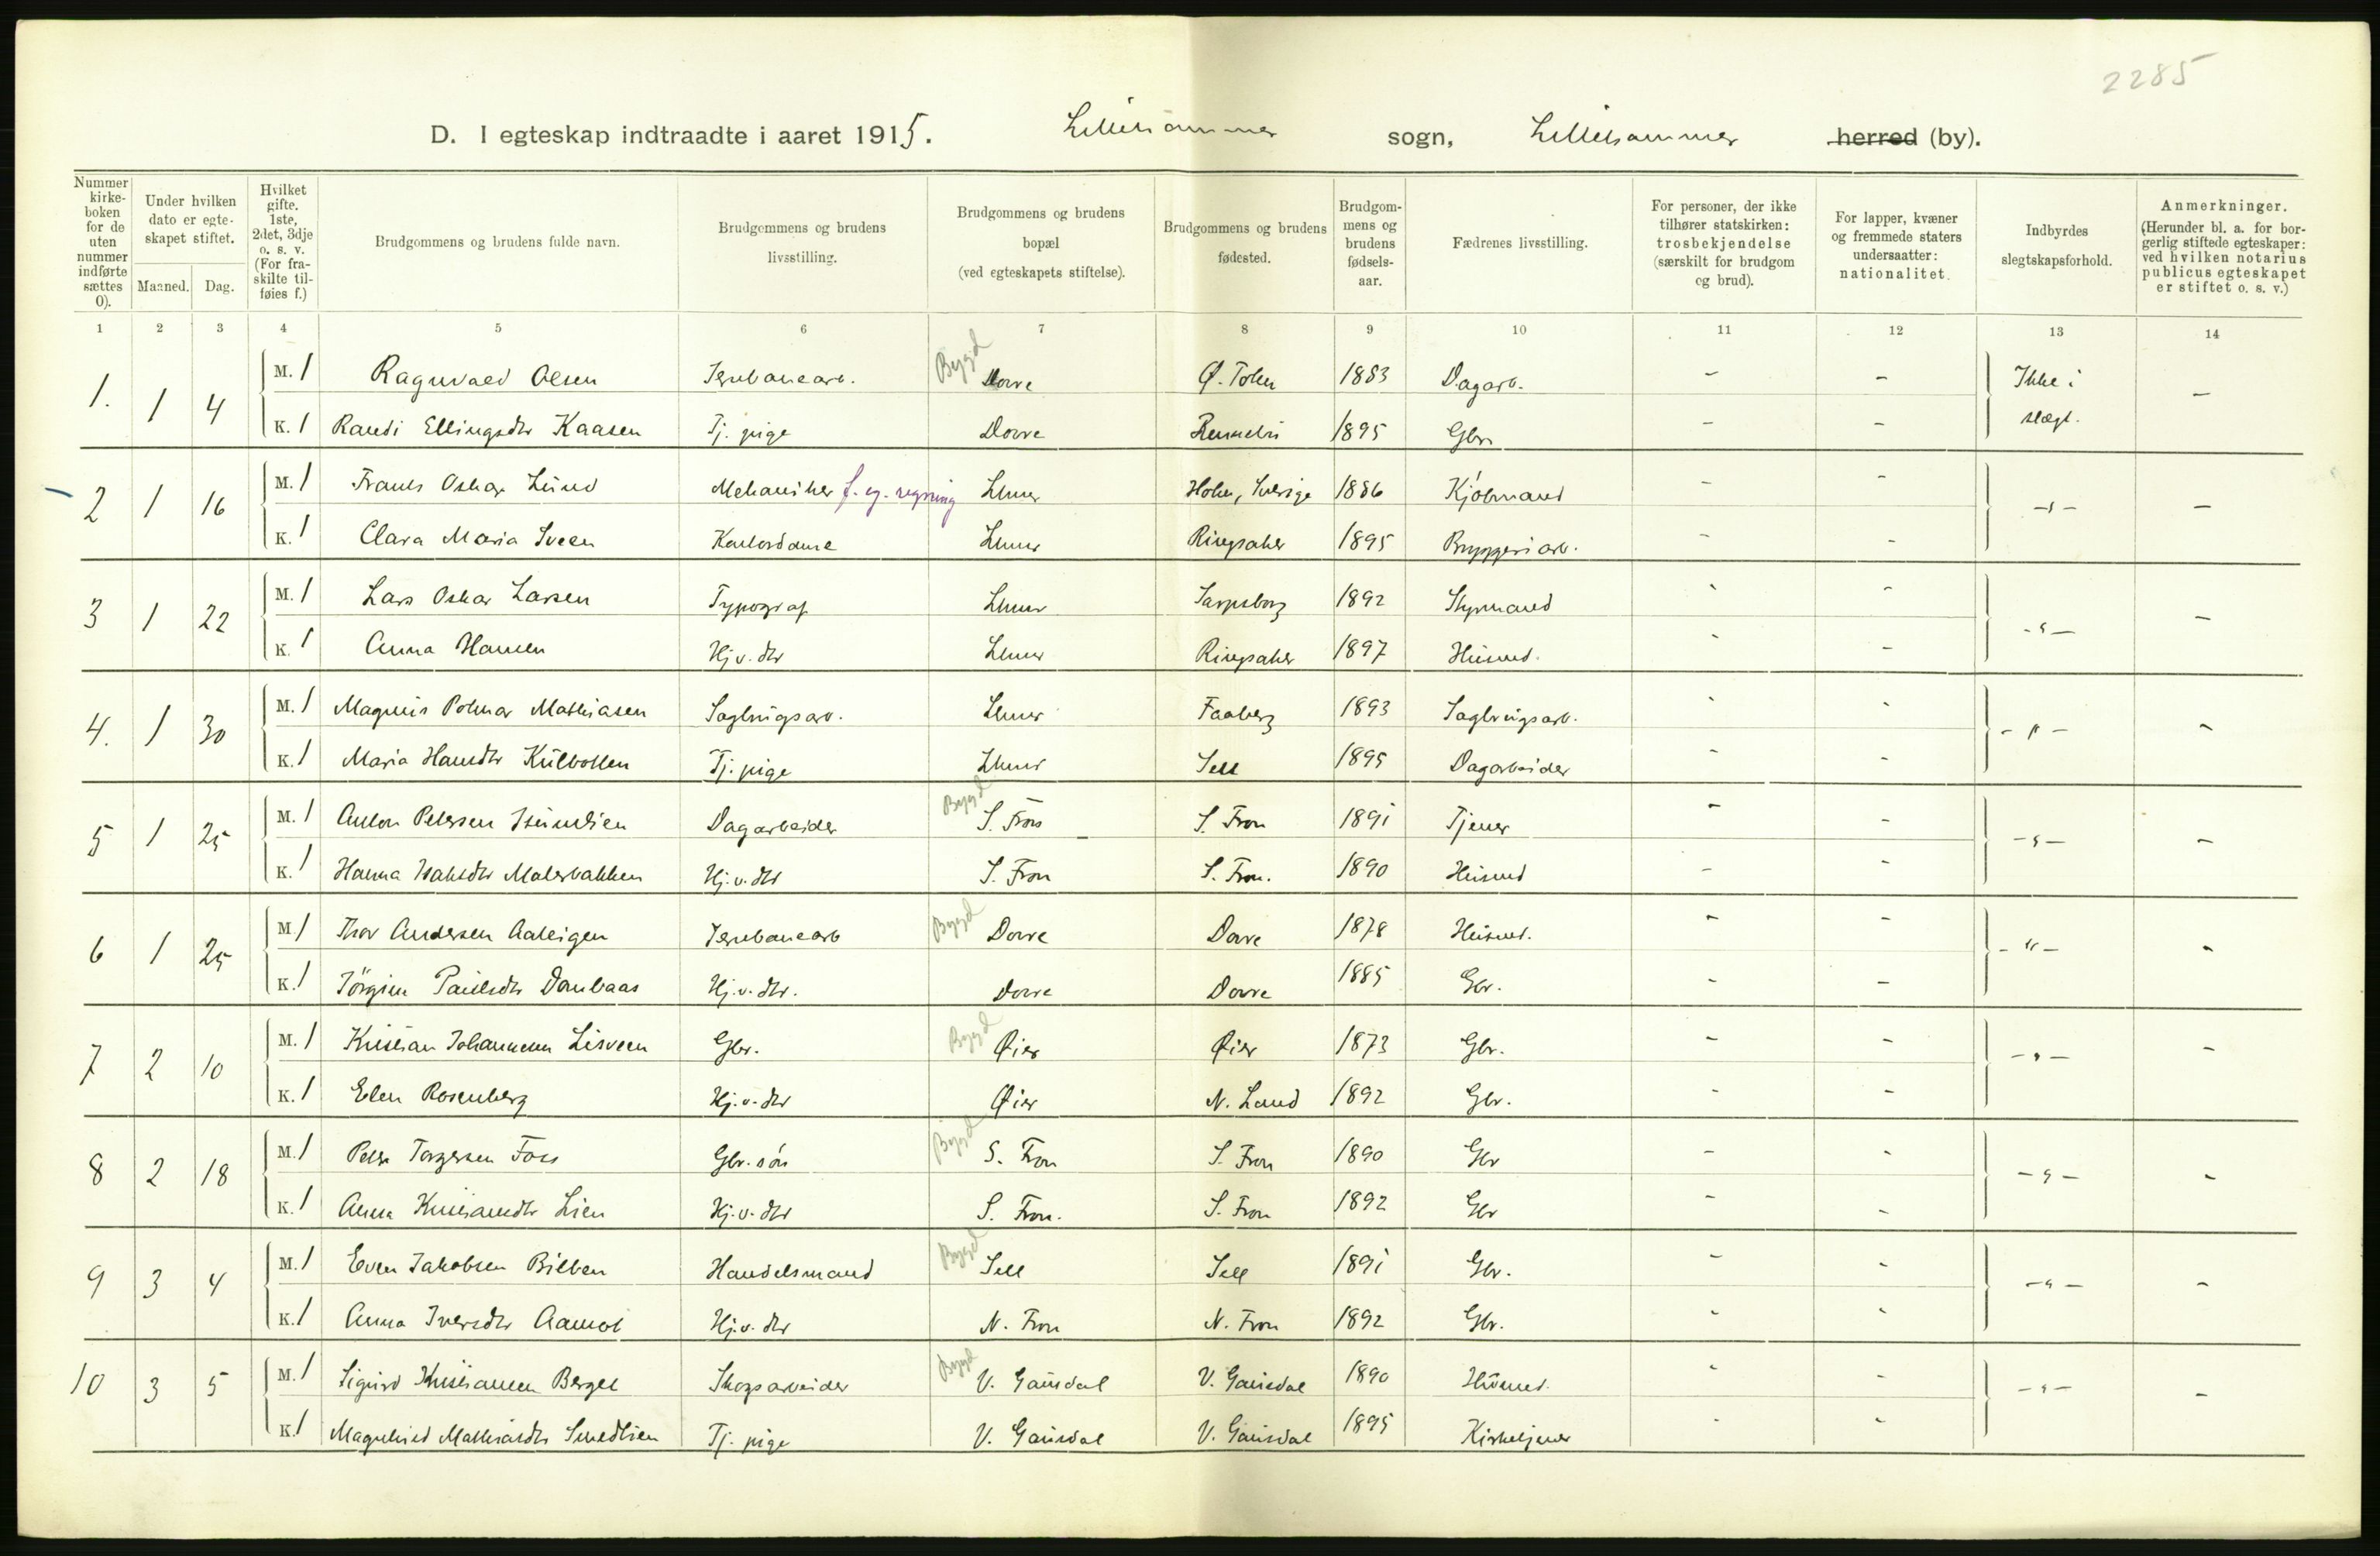 2285
D. I egteskap indtraadte i aaret 1915. Lillehammer sogn, Lillehammer herred (by).
Nummer kirke-boken for de uten nummer indførte sættes 0).
Under hvilken dato er egte-skapet stiftet.
Maaned. Dag.
Hvilket gifte. 1ste, 2det, 3dje o. s. v. (For fra-skilte til-føies f.)
Brudgommens og brudens fulde navn.
Brudgommens og brudens livsstilling.
Brudgommens og brudens bopæl (ved egteskapets stiftelse).
Brudgommens og brudens fødested.
Brudgom-mens og brudens fødsels-aar.
Fædrenes livsstilling.
For personer, der ikke tilhører statskirken: trosbekjendelse (særskilt for brudgom og brud).
For lapper, kvæner og fremmede staters undersaatter: nationalitet.
Indbyrdes slegtskapsforhold.
Anmerkninger. (Herunder bl. a. for bor-gerlig stiftede egteskaper: ved hvilken notarius publicus egteskapet er stiftet o. s. v.)
1 2 3 4 5 6 7 8 9 10 11 12 13 14
1. 1 4 M. 1 Ragnvald Olsen Jernbanearb. Bygd Dovre Ø. Toten 1883 Dagarb. - - Ikke i slægt. -
K. 1 Randi Ellingsdtr Kaasen Tj. pige Dovre Rennebu 1895 Gbr. - -
2 1 16 M. 1 Frants Oskar Lund Mekaniker f. eg. regning Lhmer Sverige 1886 Kjøbmand - - -"- -
K. 1 Clara Maria Sveen Kontordame Lhmer Ringsaker 1895 Bryggeriarb. - -
3 1 22 M. 1 Lars Oskar Larsen Typograf Lhmer Sarpsborg 1892 Styrmand - - -"- -
K. 1 Anna Hansen Hj.v. dtr Lhmer Ringsaker 1897 Husmd. - -
4. 1 30 M. 1 Magnus Polmar Mathiasen Sagbrugsarb. Lhmer Faaberg 1893 Sagbrugsarb. - - -"- -
K. 1 Maria Hansdtr Tj. pige Lhmer Sell 1895 Dagarbeider - -
5 1 25 M. 1 Anton Petersen Dagarbeider Bygd S. Fron S. Fron 1891 Tjener - - -"- -
K. 1 Hanna Isaksdtr Malerbakken Hj.v. dtr S. Fron S. Fron. 1890 Husmd - -
6 1 25 M. 1 Thor Andersen Jernbanearb Bygd Dovre Dovre 1878 Husmd. - - -"- -
K. 1 Jörgine Paulsdtr Dombaas Hj.v. dtr. Dovre Dovre 1885 Gbr. - -
7 2 10 M. 1 Kristian Johannesen Lisveen Gbr. Bygd Øier Øier 1873 Gbr. - - -"- -
K. 1 Elen Rosenberg Hj.v. dtr Øier N. Land 1892 Gbr. - -
8 2 18 M. 1 Peter Torgersen Foss Gbr. sön Bygd S. Fron S. Fron 1890 Gbr - - -"- -
K. 1 Anna Kristiansdtr Lien Hj.v. dtr S. Fron. S. Fron 1892 Gbr - -
9 3 4 M. 1 Even Jakobsen Bilben Handelsmand Bygd Sell Sell 1891 Gbr. - - -"- -
K. 1 Anna Iversdtr Aamot Hj.v. dtr N. Fron N. Fron 1892 Gbr. - -
10 3 5 M. 1 Sigurd Kristiansen Berget Skogsarbeider Bygd V. Gausdal V. Gausdal 1890 Husmd. - - -"- -
K. 1 Magnhild Mathiasdtr Smedlien Tj. pige V. Gausdal V. Gausdal 1895 Kirketjener - -